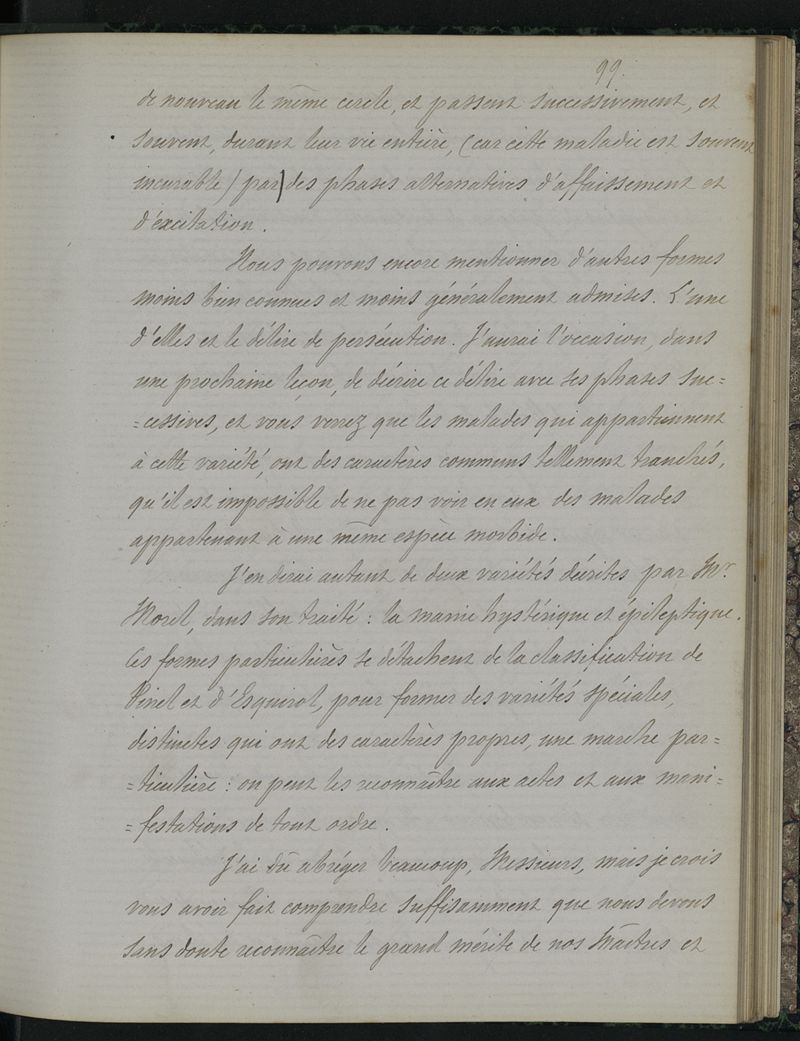 99.
de nouveau le même cercle, et passent successivement, et
souvent, durant leur vie entière, (car cette maladie est souvent
incurable) par) des phases alternatives d'affaissement et
d'éxcitation.
Nous pouvons encore mentionner d'autres formes
moins bien connues et moins généralement admises. L'une
d'elles et le délire de persécution. J'aurai l'occasion, dans
une prochaine leçon, de décrire ce délire avec ses phases suc=
=cessives, et vous verrez que les malades qui appartiennent
à cette variété, ont des caractères communs tellement tranchés,
qu'il est impossible de ne pas voir en eux des malades
appartenant à une même espèce morbide.
J'en dirai autant de deux variétés décrites par Mr.
Morel, dans son traité : la manie hystérique et épileptique.
Ces formes particulières se détachent de la classification de
Pinel et d'Esquirol, pour former des variétés spéciales,
distinctes qui ont des caractères propres, une marche par=
=ticulière : on peut les reconnaître aux actes et aux mani=
=festations de tout ordre.
J'ai dû abréger beaucoup, Messieurs, mais je crois
vous avoir fait comprendre suffisamment que nous devons
sans doute reconnaître le grand mérite de nos Maîtres et